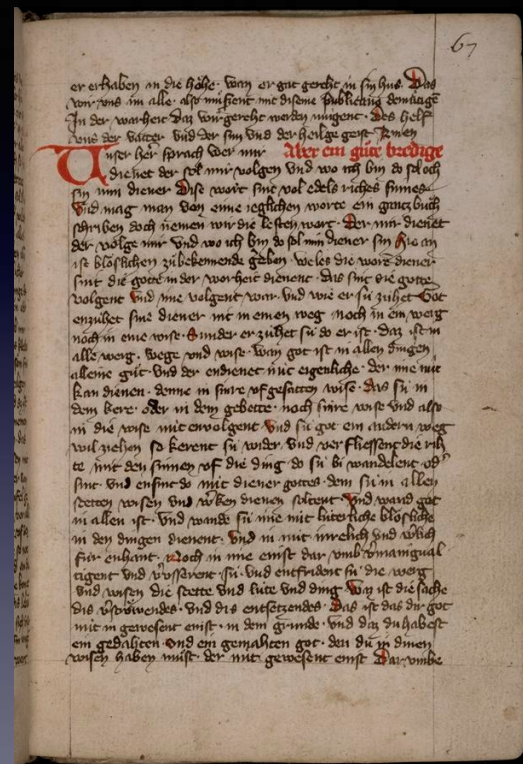 67
er erhaben in die höhe · wan er gat gereht in sin hus · Das
wir uns im alle also
In der warheit daz wir gereht werden mügent · Des helf
uns der vatter und der sun und der heilge geist Amen
Unser her sprach wer mir Aber ein gůte bredige
dienet der sol mir volgen und wo ich bin do sol och
sin min diener Dise wort sint vol edels riches sinnes
Und mag man von eime ieglichen worte ein gantz buch
schriben doch nemen wir die lesten wort · Der mir dienet
der volge mir und wo ich bin do sol min diener sin Hie an
ist blöslichen zů bekennende geben · weles die wore diener
sint die gotte in der worheit dienent · das sint die gotte
volgent Und nie volgent war · und wie er sü zühet Got
enzühet sine diener nit in einen weg noch in ein werg
noch in eine wise · Sunder er zühet sü do er ist · daz ist in
alle werg · wege und wise · wan got ist in allen dingen
alleine gůt · und der endienet nüt eigenliche · der me nüt
kan dienen · denne in sinre ufgesatten wise · das sü in
dem kere · oder in dem gebette · noch sinre wise und also
in die wise nüt envolgent Und sü got ein andern weg
wil ziehen so kerent sü wider · und verfliessent die rih
te mit den sinnen uf die ding · do sü bi wandelent od
sint · und ensint do nüt diener gottes · dem sü in allen
stetten wisen und dienen soltent · Und wand got
in allen ist · und wande sü nie nüt luterliche blösliche
in den dingen dienent · Und in nüt inrelich und
für enhant · Noch in nie einst dar umb
tigent und · sü · und entfrident sü die werg
und wisen die stette und lüte und ding · Waz ist die sache
dis und dis entsetzendes · Das ist das dir got
nüt in gewesent enist · in dem grunde · und daz du habest
ein gedahten · und ein gemahten got · den du in dinen
wisen haben müst · der nüt gewesent enist Dar umbe